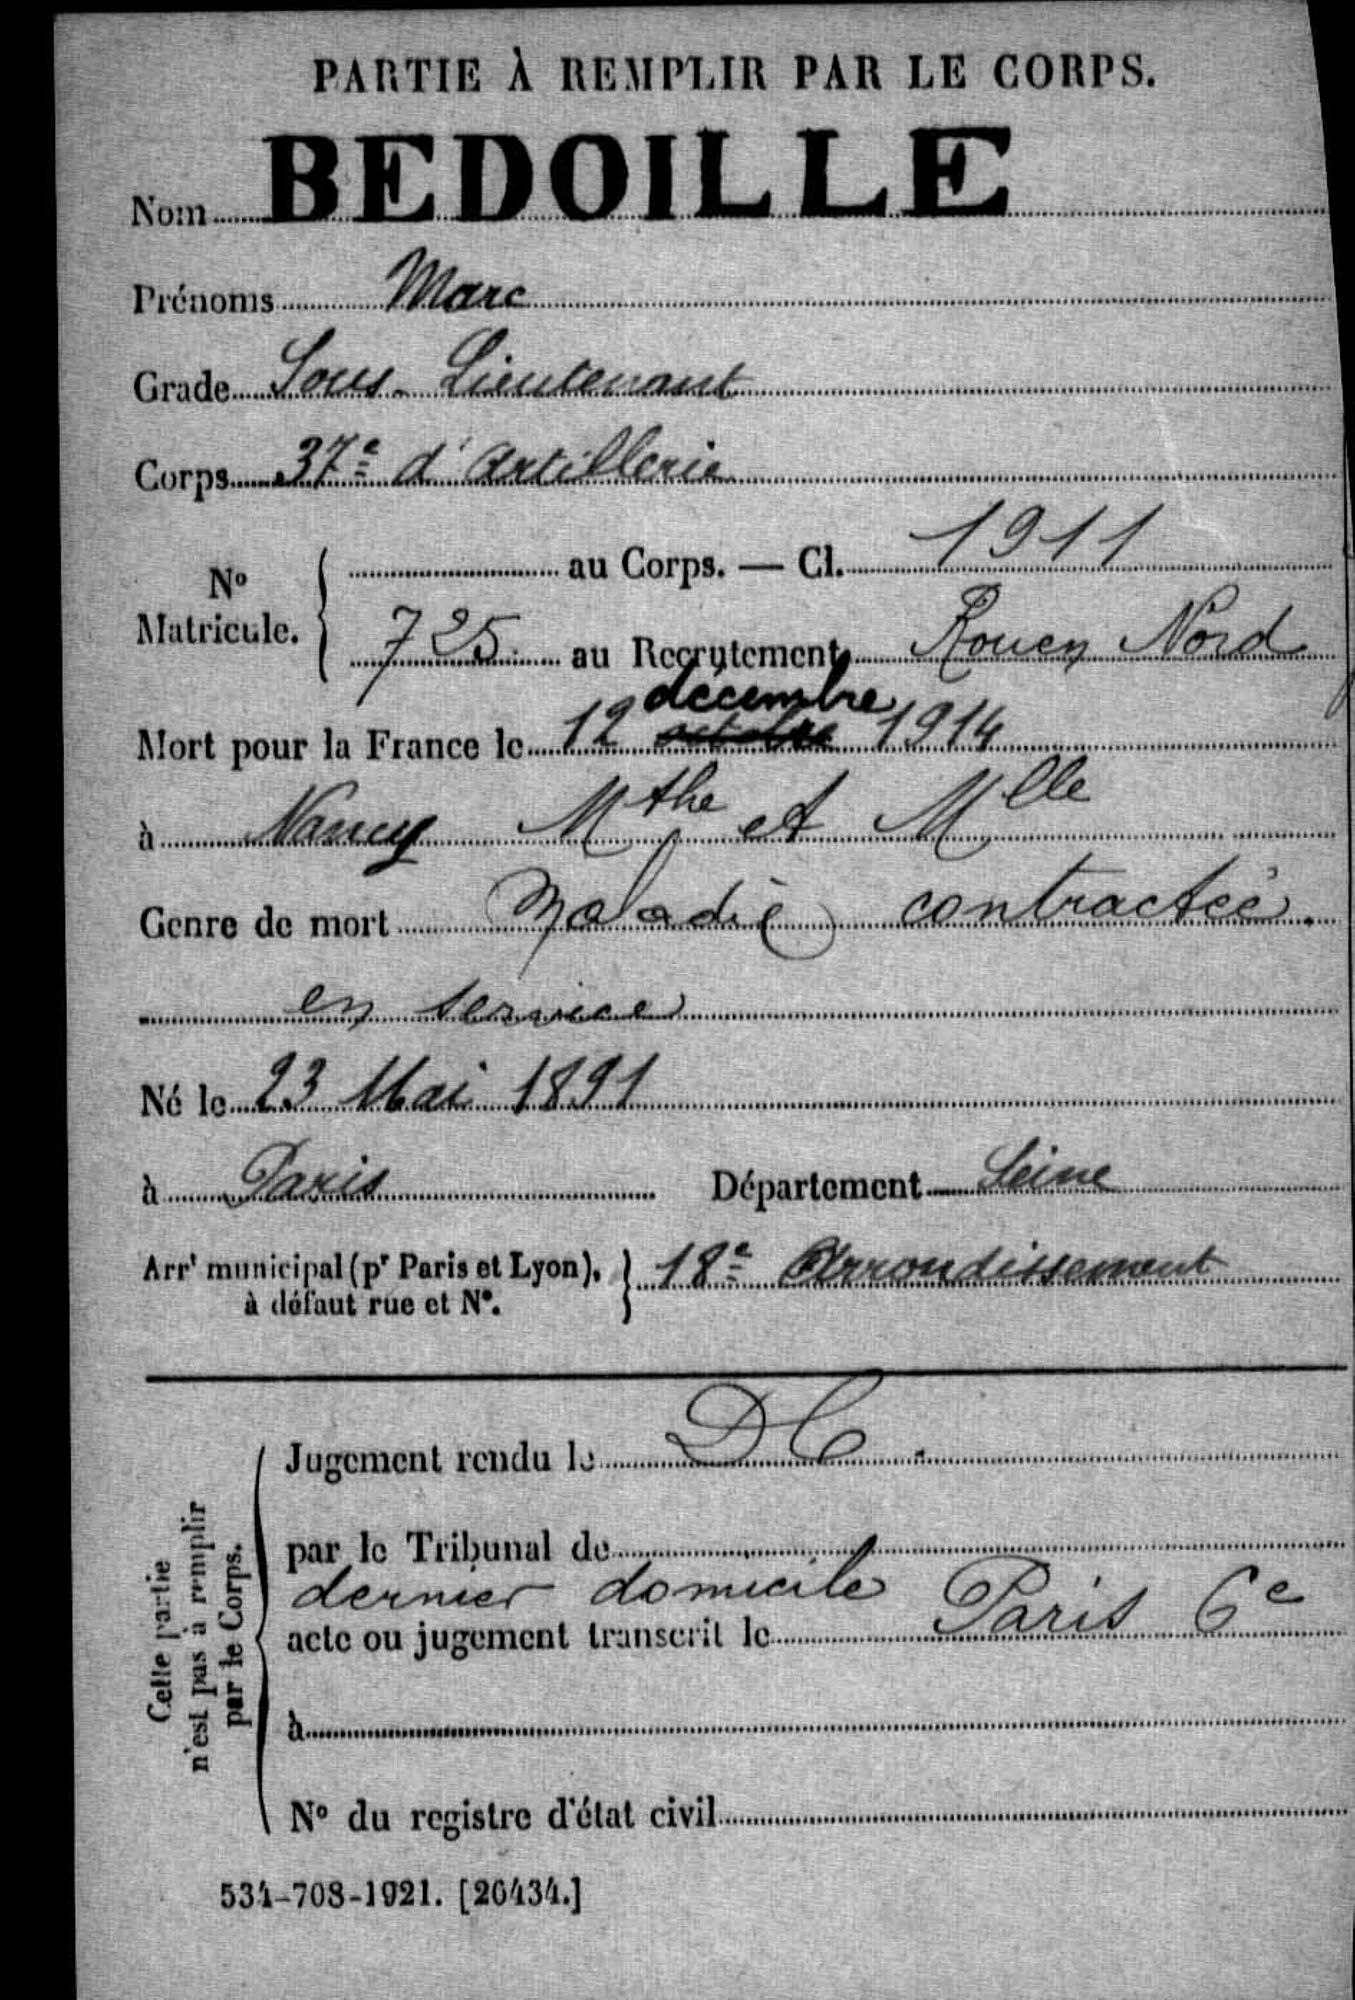 PARTIE À REMPLIR PAR LE CORPS.
Nom BEDOILLE
Prénoms Marc
Grade Sous-Lieutenant
Corps 37e d'Artillerie
No Matricule. { au Corps. — Cl. 1911
725 au Recrutement Rouen Nord
décembre
Mort pour la France le 12 octobre 1914
à Nancy Mthe et Mlle
Genre de mort Maladie contractée
en service
Né le 23 Mai 1891
à Paris Département Seine
Arrt municipal (pr Paris et Lyon), à défaut rue et No. } 18e Arrondissement
Cette partie n'est pas à remplir par le Corps.
Jugement rendu le DC.
par le Tribunal de
dernier domicile Paris 6e
acte ou jugement transcrit le
à
No du registre d'état civil
534-708-1921. [26434.]